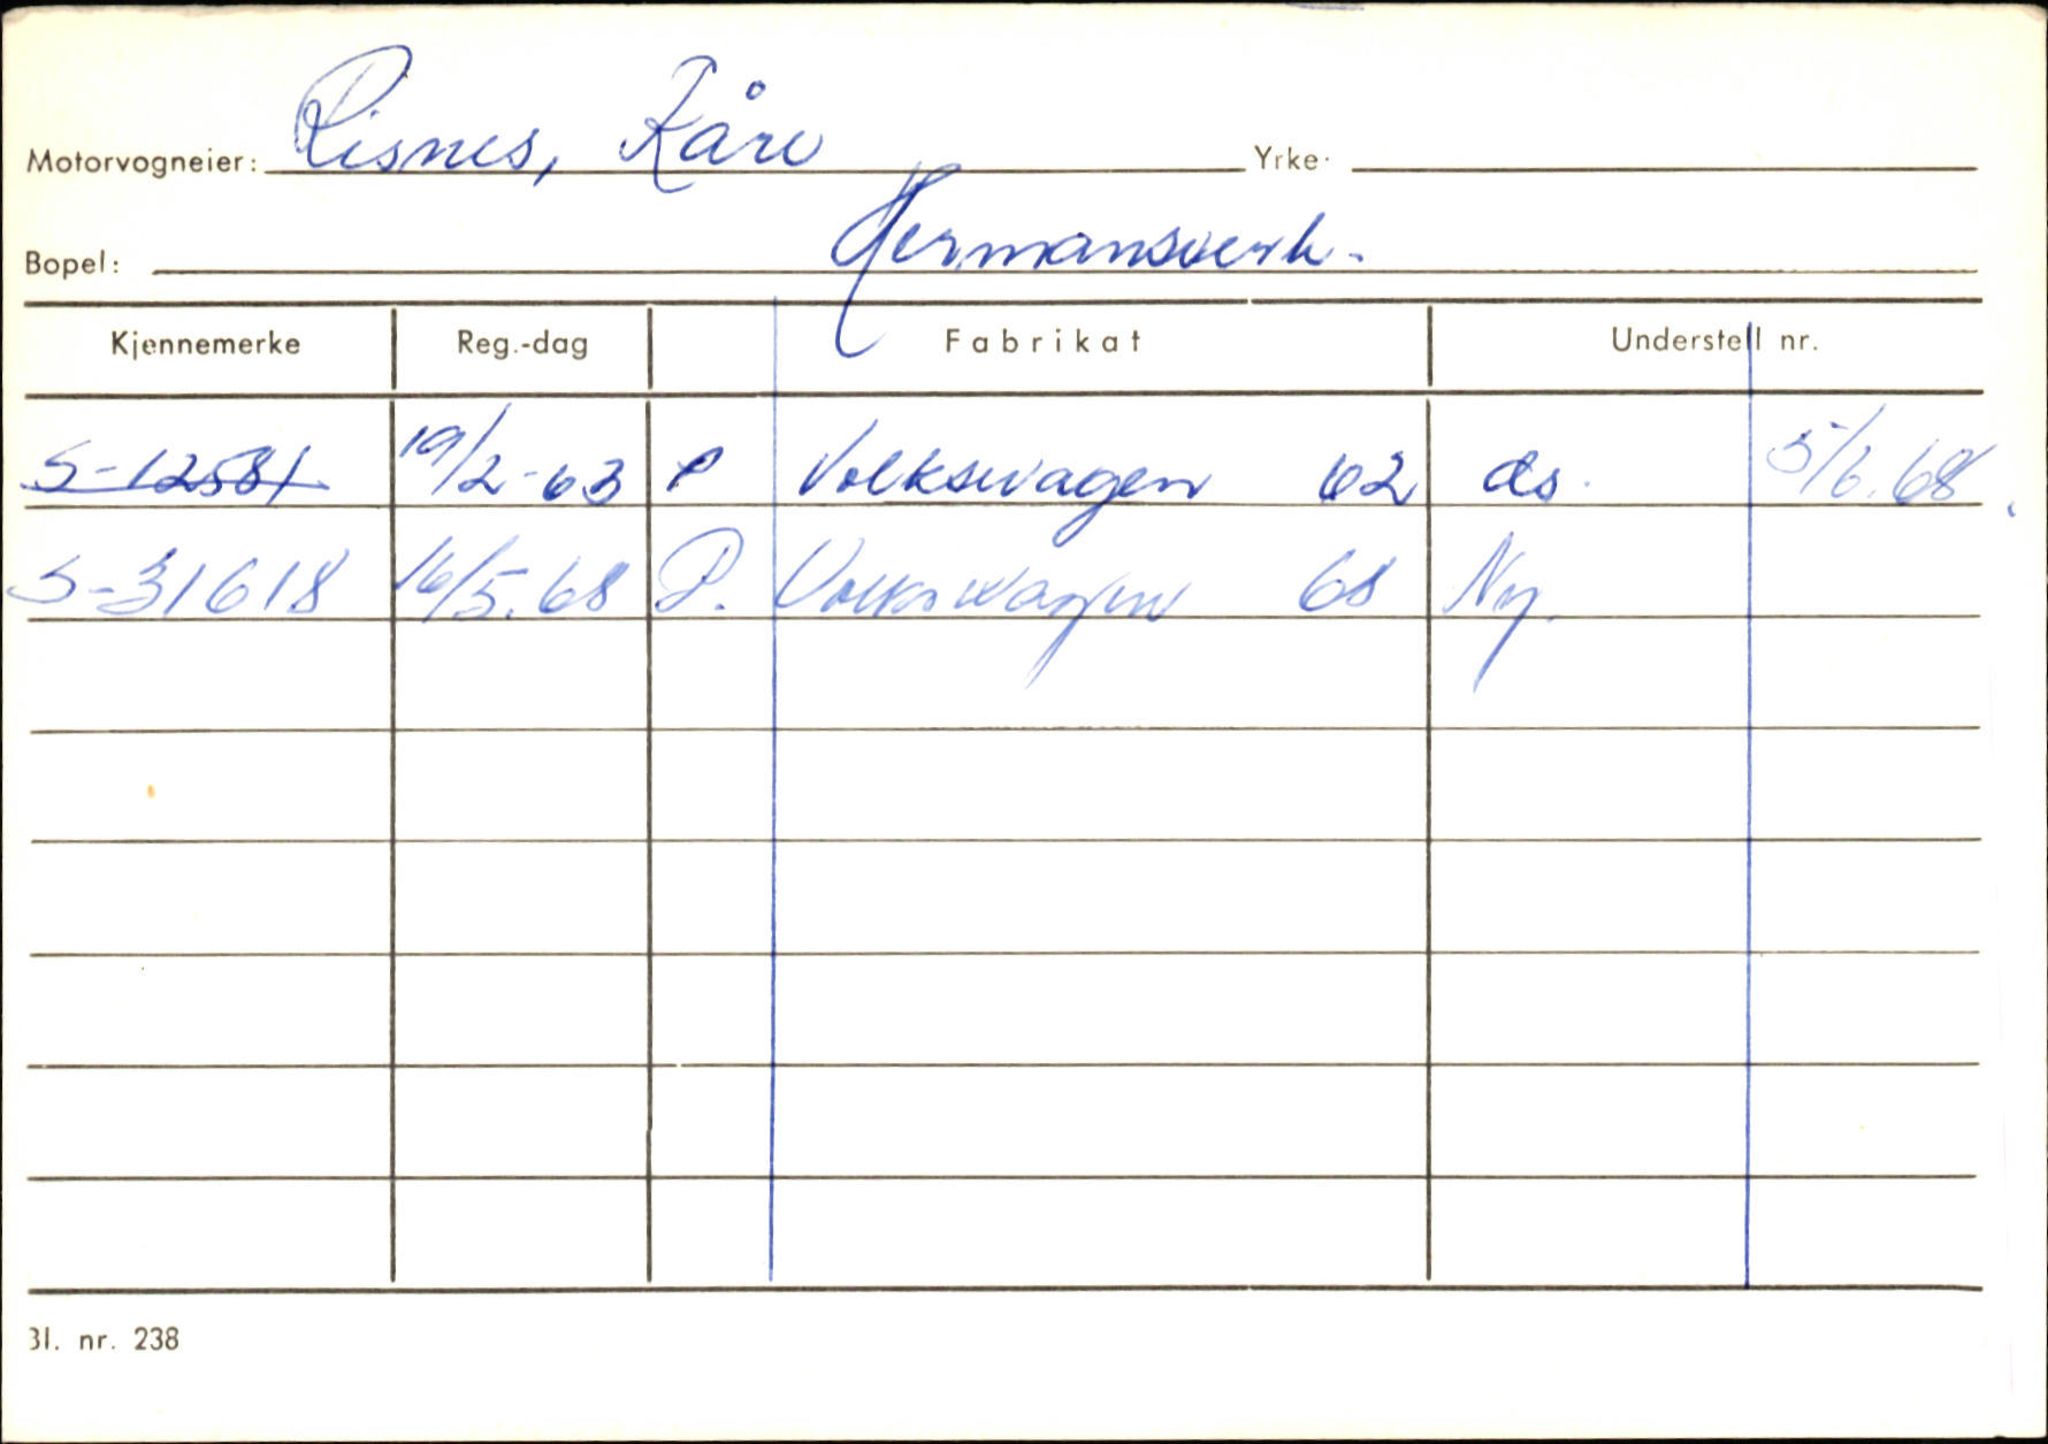 Motorvogneier: Risnes, Kåre Yrke:
Bopel: Hermansverk.
Kjennemerke Reg.-dag Fabrikat Understell nr.
S-12581 19/2-63 P Volkswagen 62 ds. 5/6.68
S-31618 16/5.68 P. Volkswagen 68 Ny.
Bl. nr. 238